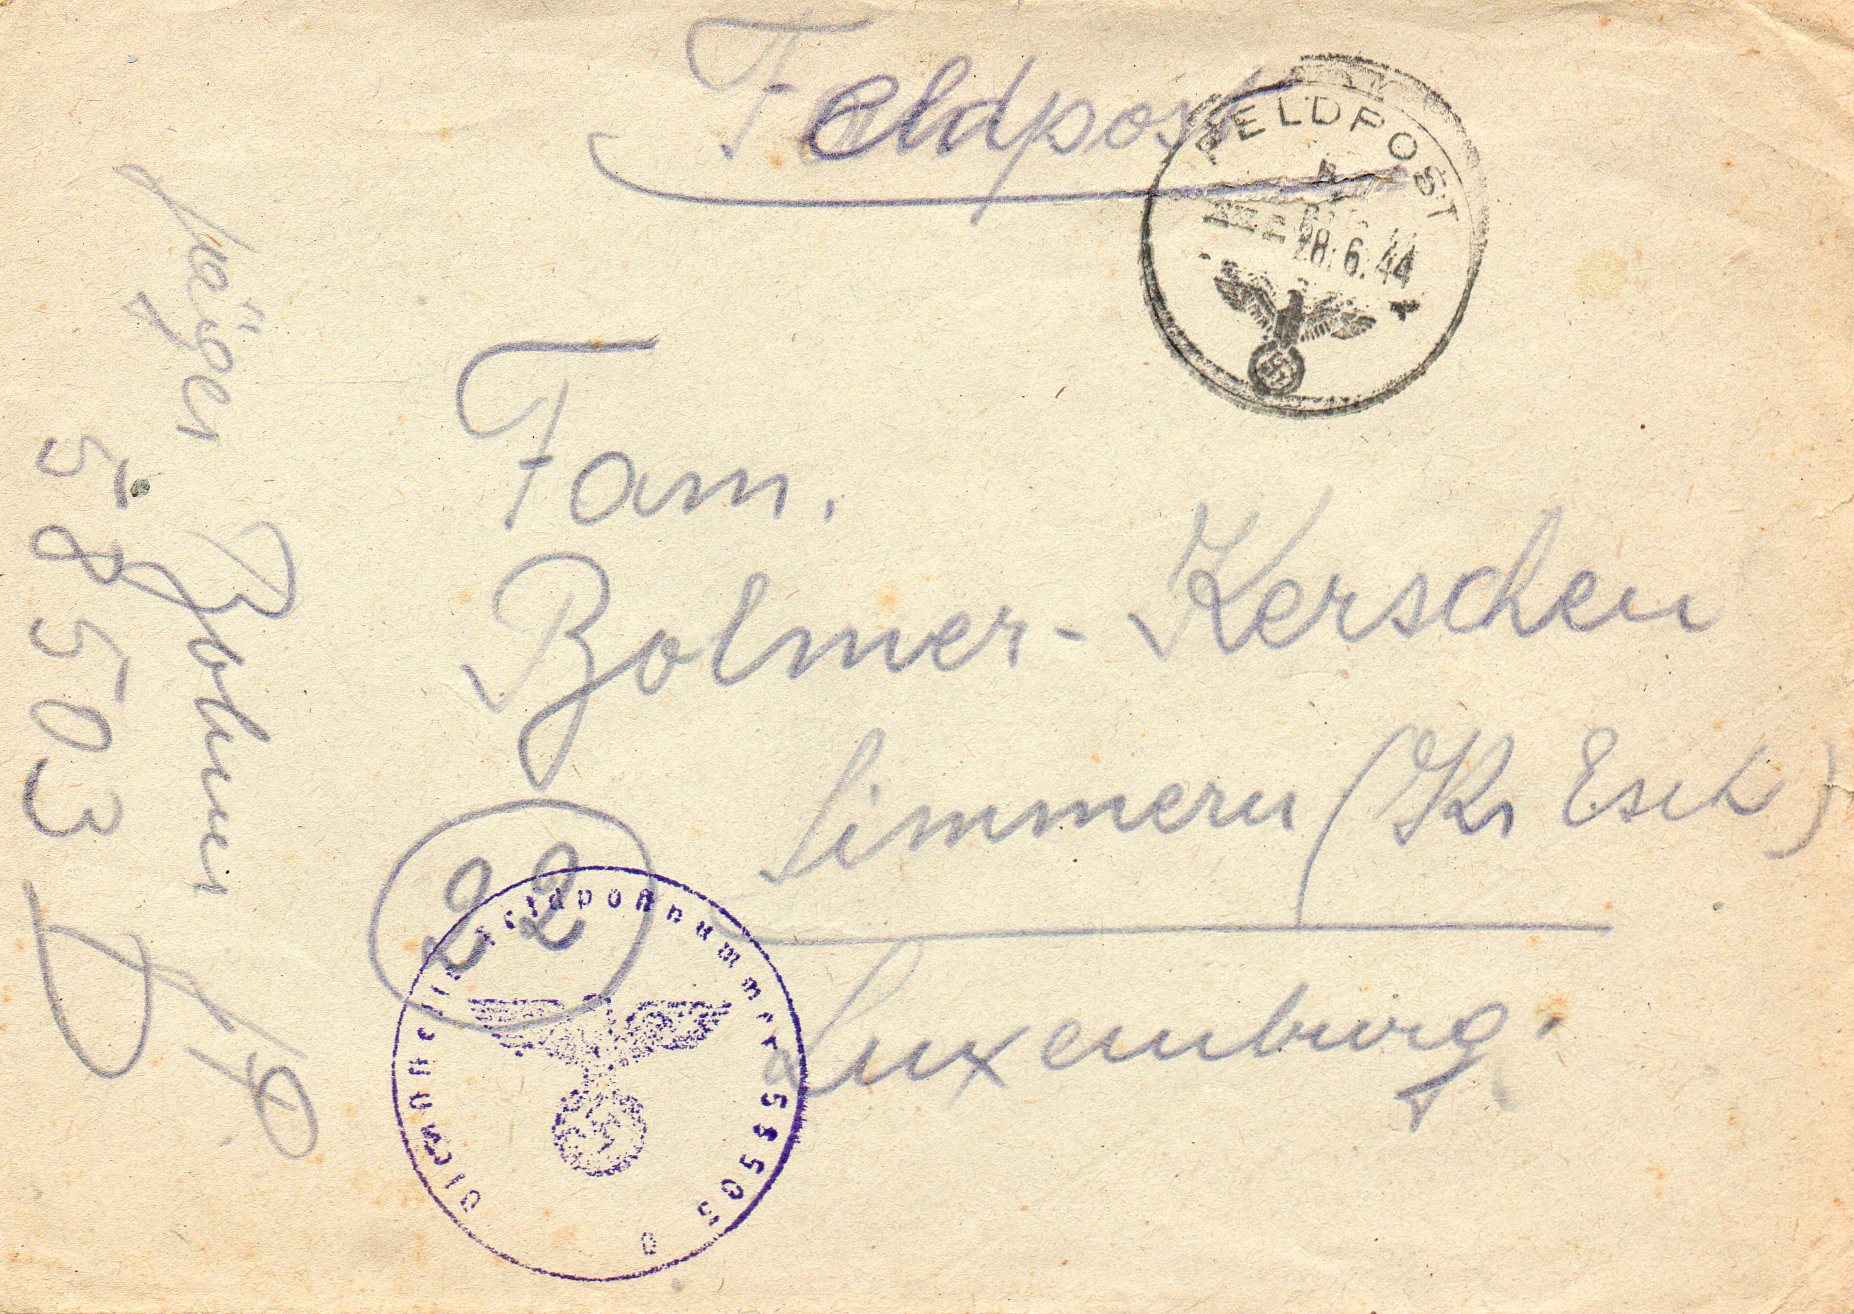 Feldpost
FELDPOST
28.6.44
Fam.
Bolmer-Kerschen
Simmern (Kr Esch)
22
Luxemburg.
Dienststelle Feldpostnummer 58503 D
Jäger Bolmer
58503 D